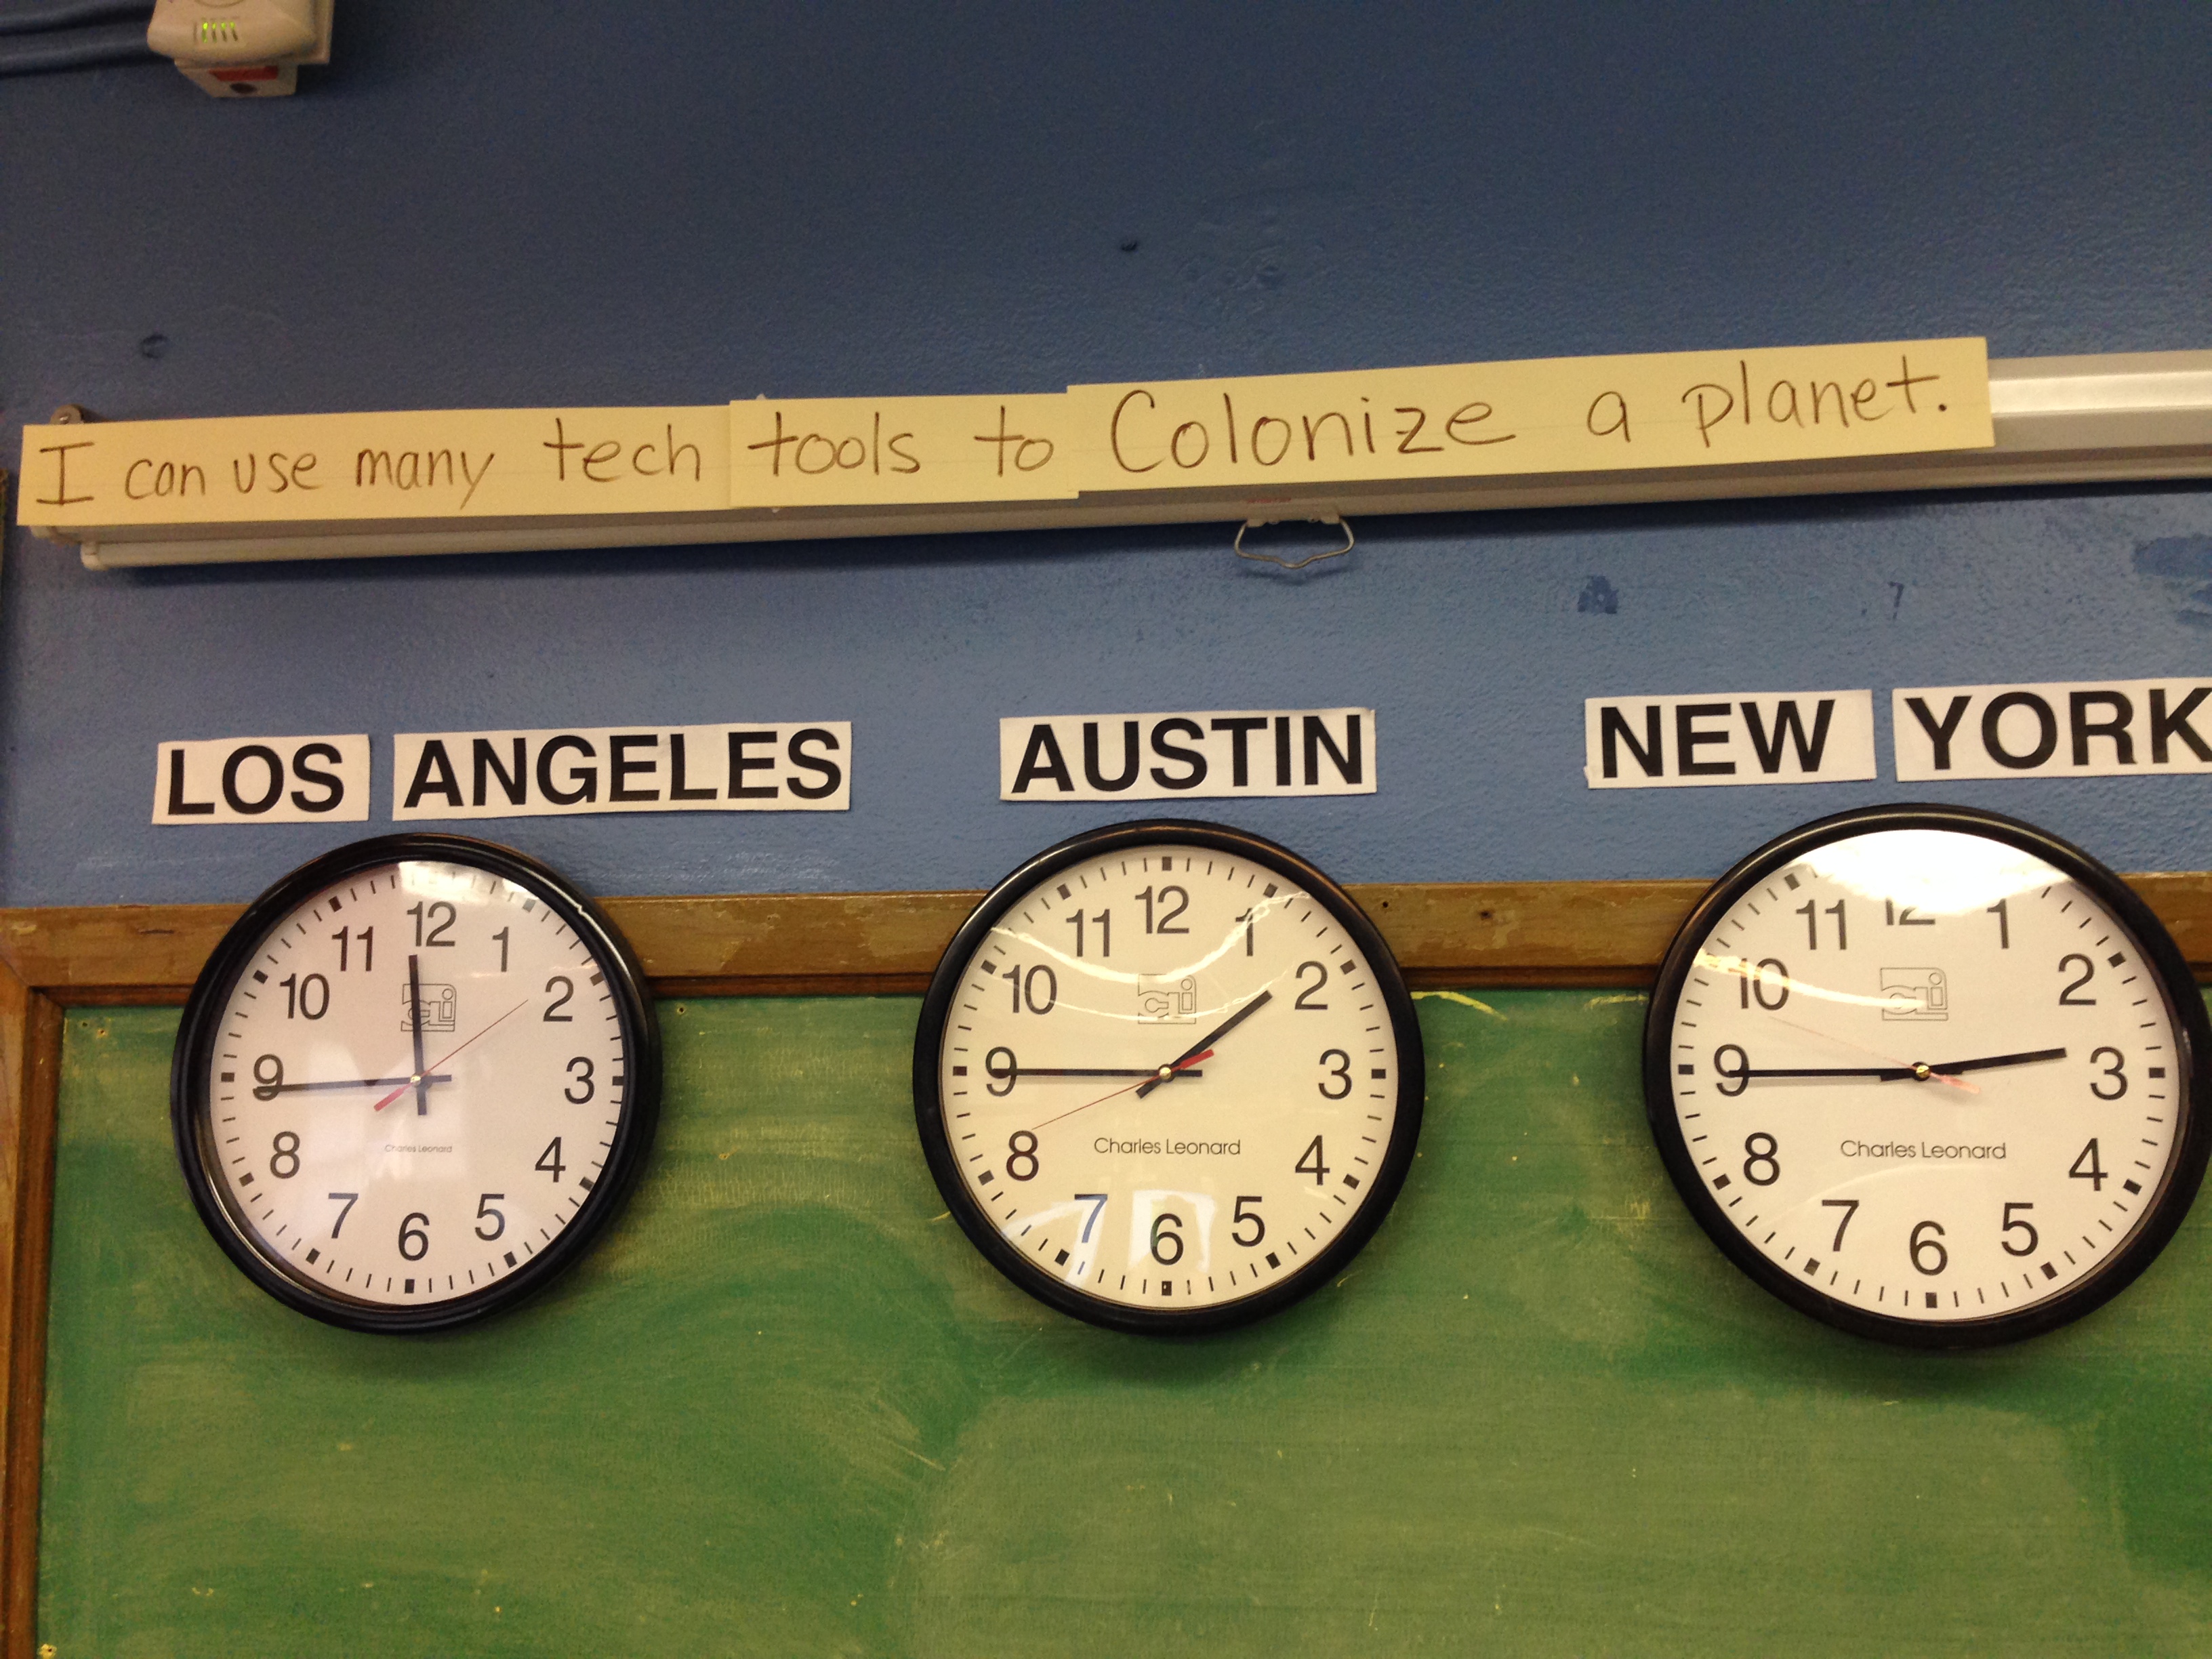 I can use many tech tools to Colonize a planet.
LOS ANGELES
AUSTIN
NEW YORK
12
1
2
3
4
5
6
7
8
9
10
11
Charles Leonard
12
1
2
3
4
5
6
7
8
9
10
11
cli
Charles Leonard
12
1
2
3
4
5
6
7
8
9
10
11
cli
Charles Leonard